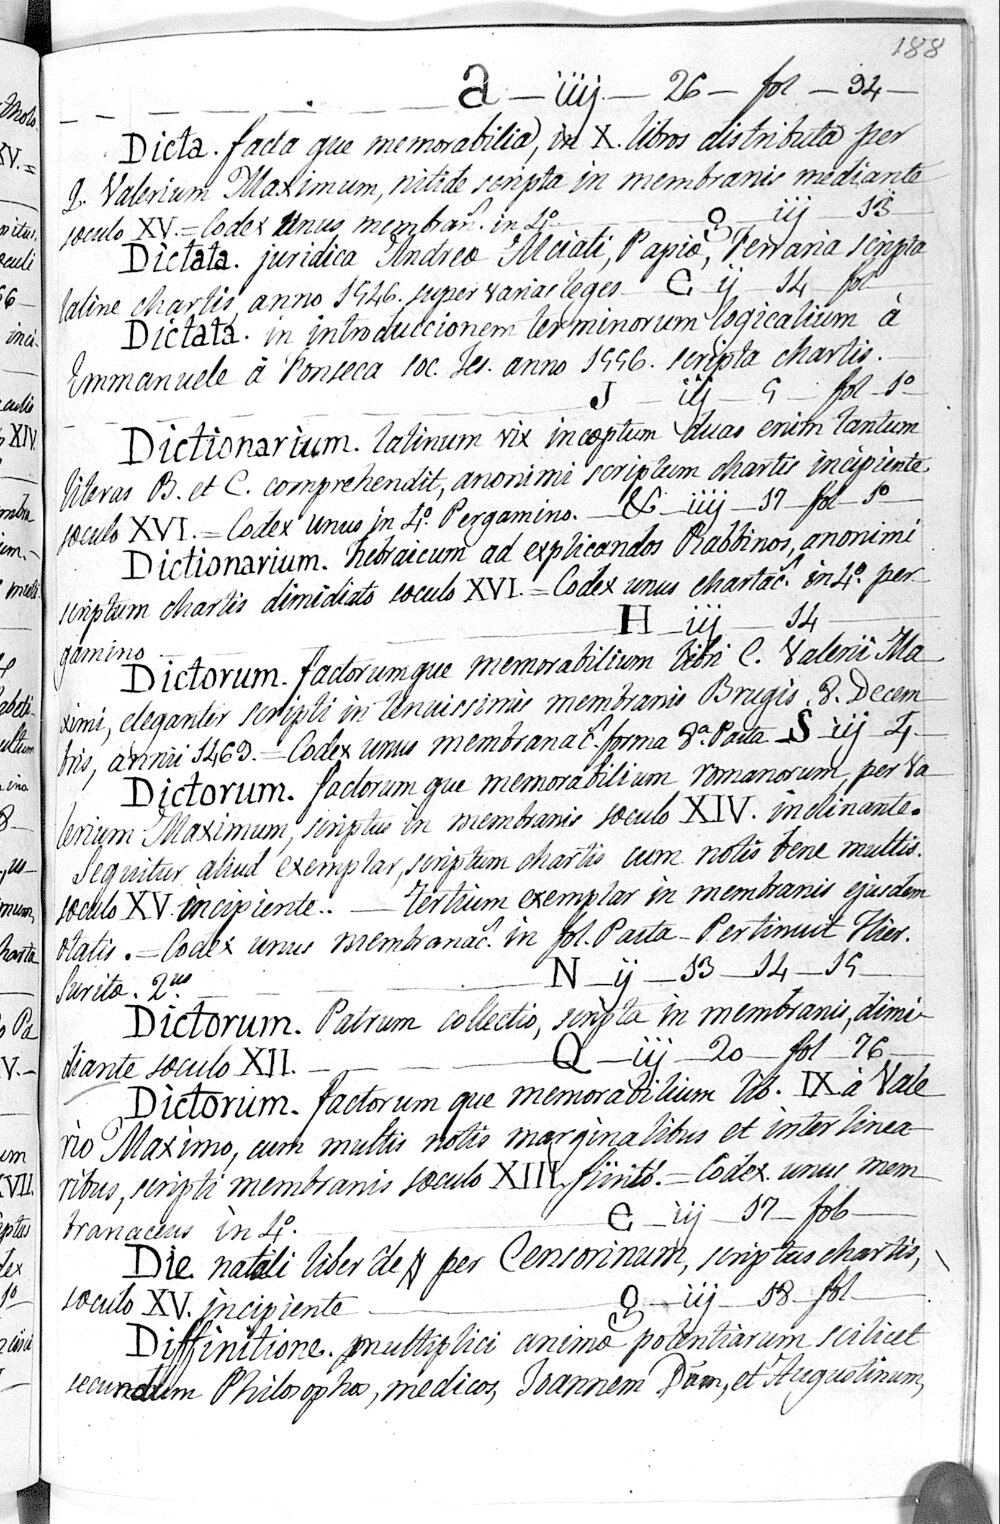 188
a — iiij — 26 — fol — 94 —
Dicta. facta que memorabilia, in X. libros distributa per
Q. Valerium Maximum, nitide scripta in membranis mediante
sæculo XV. = Codex unus membran. in 4º — g — iij — 13
Dictata. juridica Andreæ Alciati, Papiæ, Ferraria scripta
latine chartis, anno 1546. super varias leges — C — ij — 14 — fol
Dictata. in introduccionem terminorum logicalium à
Emmanuele à Fonseca soc. Jes. anno 1556. scripta chartis.
J — iij — 5 — fol — 1º
Dictionarium. latinum vix incœptum duas enim tantum
literas B. et C. comprehendit, anonimi scriptum chartis incipiente
sæculo XVI. = Codex unus in 4º. Pergamino. — & — iiij — 17 — fol — 1º
Dictionarium. hebraicum ad explicandos Rabbinos, anonimi
scriptum chartis dimidiato sæculo XVI. = Codex unus chartac. in 4º. per
gamino — H — iij — 14
Dictorum. factorumque memorabilium libri C. Valerii Ma
ximi, eleganter scripti in tenuissimis membranis Brugis, 8. Decem
bris, annii 1469. = Codex unus membranac. forma 8ª. Pasta — S — iij — 4.
Dictorum. factorum que memorabilium romanorum, per Va
lerium Maximum, scriptus in membranis sæculo XIV. inclinante.
Sequitur aliud exemplar, scriptum chartis cum notis bene multis.
sæculo XV. incipiente.. — tertium exemplar in membranis ejusdem
ætatis. = Codex unus membranac. in fol. Pasta — Pertinuit Hier.
Suritæ. 2us — N — ij — 13 — 14 — 15
Dictorum. Patrum collectio, scripta in membranis, dimi
diante sæculo XII. — Q — iij — 20 — fol — 76
Dictorum. factorum que memorabilium lib. IX à Vale
rio Maximo, cum multis notis marginalibus et interlinea
ribus, scripti membranis sæculo XIII. = Codex unus mem
branaceus in 4º. — e — iij — 17 — fol
Die natali liber de per Censorinum, scriptus chartis,
sæculo XV. incipiente — g — iij — 18 — fol
Diffinitione. multiplici animæ potentiarum scilicet
secundum Philosophos, medicos, Joannem Dam, et Augustinum,